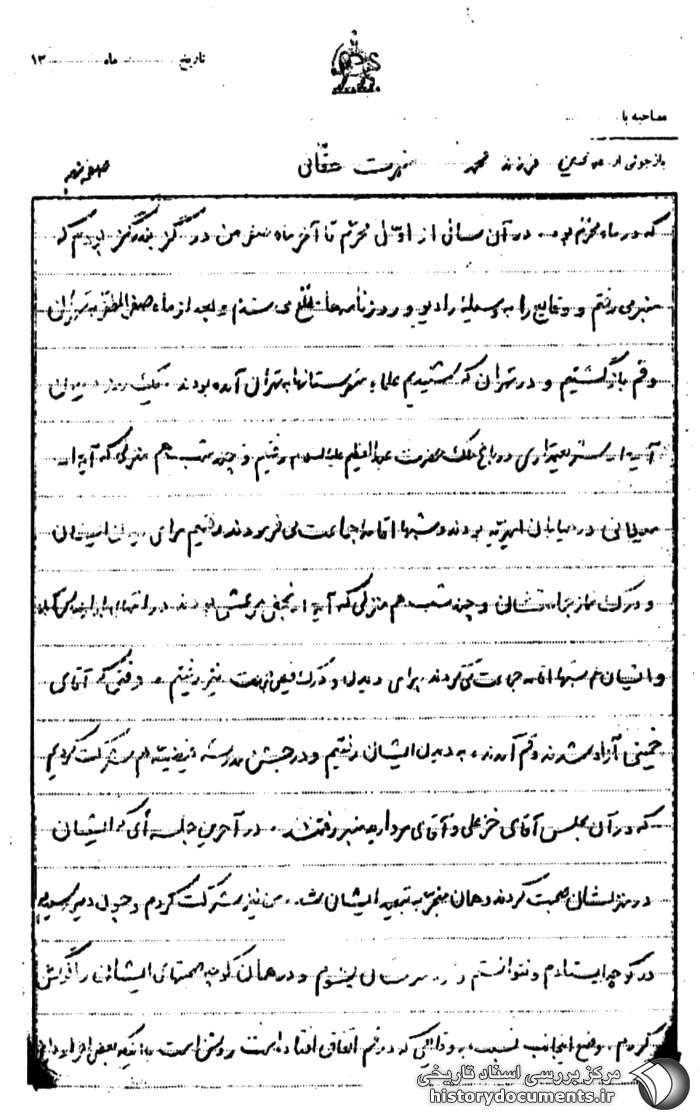 تاریخ ........ ماه ........ ۱۳
مصاحبه با
بازجوئی از فرزند محمد شهرت حقانی صفحه
که در ماه محرم بود. در آن سالی از اوائل محرم تا آخر ماه صفر من در گز بندرگز بودم که
منبر می رفتم و وقایع را به وسیلهٔ رادیو و روزنامه‌ها مطلع می شدم و بعد از ماه صفر المظفر به تهران
و قم بازگشتیم و در تهران که شنیدیم علماء شهرستانها به تهران آمده بودند. یک روز
آیة ا... شریعتمداری در باغ ملک حضرت عبدالعظیم علیه السلام رفتیم و چند شب هم منزلی که آیة ا...
میلانی در خیابان امیریه بودند و شبها اقامه جماعت می فرمودند رفتیم برای دیدن ایشان
و درک نماز جماعتشان و چند شب هم منزلی که آیة ا... نجفی مرعشی بودند در انتهای
و ایشان هم شبها اقامه جماعت می کردند برای دیدن و درک فیض جماعت نیز رفتیم. وقتی که آقای
خمینی آزاد شدند و قم آمدند، به دیدن ایشان رفتیم و در جشن مدرسه فیضیه هم شرکت کردیم
که در آن مجلس آقای خزعلی و آقای مروارید منبر رفتند. در آخرین جلسه أی که ایشان
در منزلشان صحبت کردند و همان منجر به تبعید ایشان شد. من نیز شرکت کردم و چون دیر رسیدم
در کوچه ایستادم و نتوانستم وارد منزلشان بشوم و در همان کوچه صحبتهای ایشان را گوش
کردم. وضع اینجانب نسبت به وقایعی که در قم اتفاق افتاده است روشن است با اینکه بعضی افراد
مرکز بررسی اسناد تاریخی
historydocuments.ir